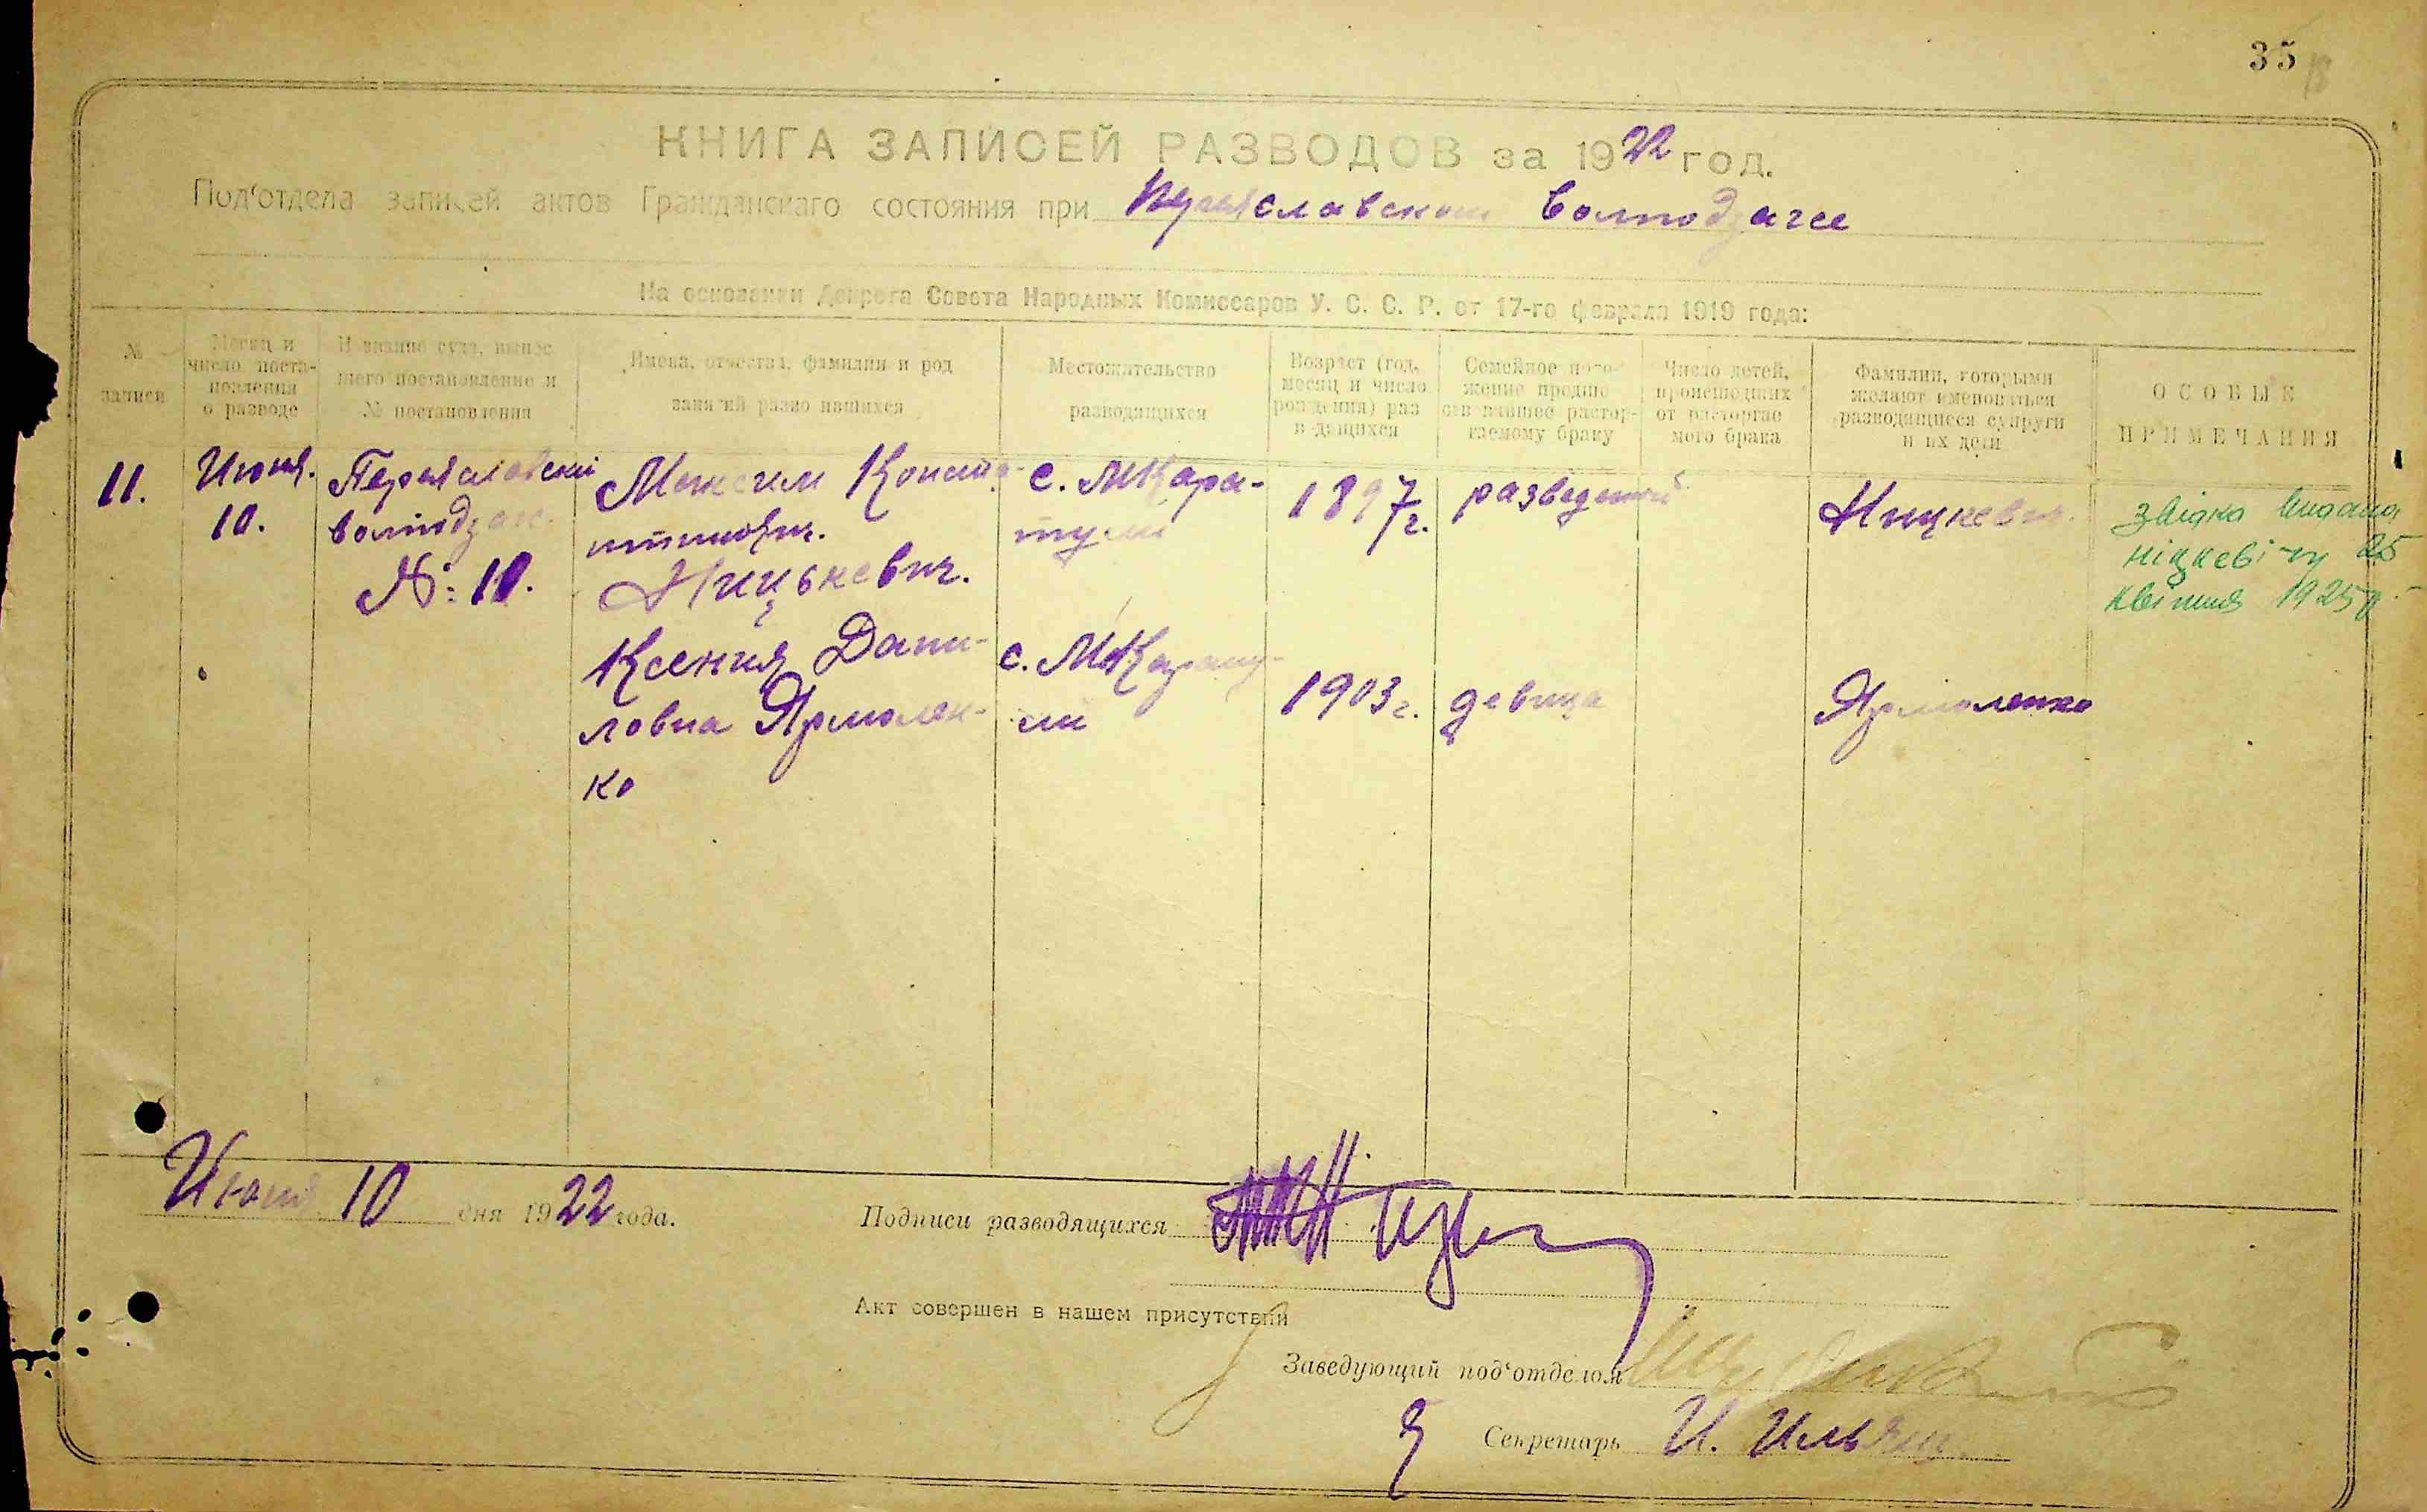 35
КНИГА ЗАПИСЕЙ РАЗВОДОВ за 1922 год.
Под‘отдела записей актов Гражданскаго состояния при Переяславском Волподзагсе
На основании Декрета Совета Народных Комиссаров У. С. С. Р. от 17-го февраля 1919 года:
№ записи
Месяц и число постановления о разводе
Название суда, вынесшего постановление и № постановления
Имена, отчества, фамилии и род занятий разводившихся
Местожительство разводящихся
Возраст (год, месяц и число рождения) разводящихся
Семейное положение предшествовавшее расторгаемому браку
Число детей, происшедших от расторгаемого брака
Фамилии, которыми желают именоваться разводящиеся супруги и их дети
ОСОБЫЕ ПРИМЕЧАНИЯ
11.
Июня.
10.
Переяславский
волподзаг.
№: 10.
Максим
Ницькевич.
с. МКара-
тули
1897 г.
разведеный
Ницкевич.
Звідка видана
Ніцкевічу 25
квітня 1925р.
Ксения Дани-
ловна Ярмолен-
ко
с. МКарату-
ли
1903 г.
девица
Ярмоленко
Июня 10 дня 1922 года.
Подписи разводящихся
Акт совершен в нашем присутствии
Заведующий под‘отделом
Секретарь И.